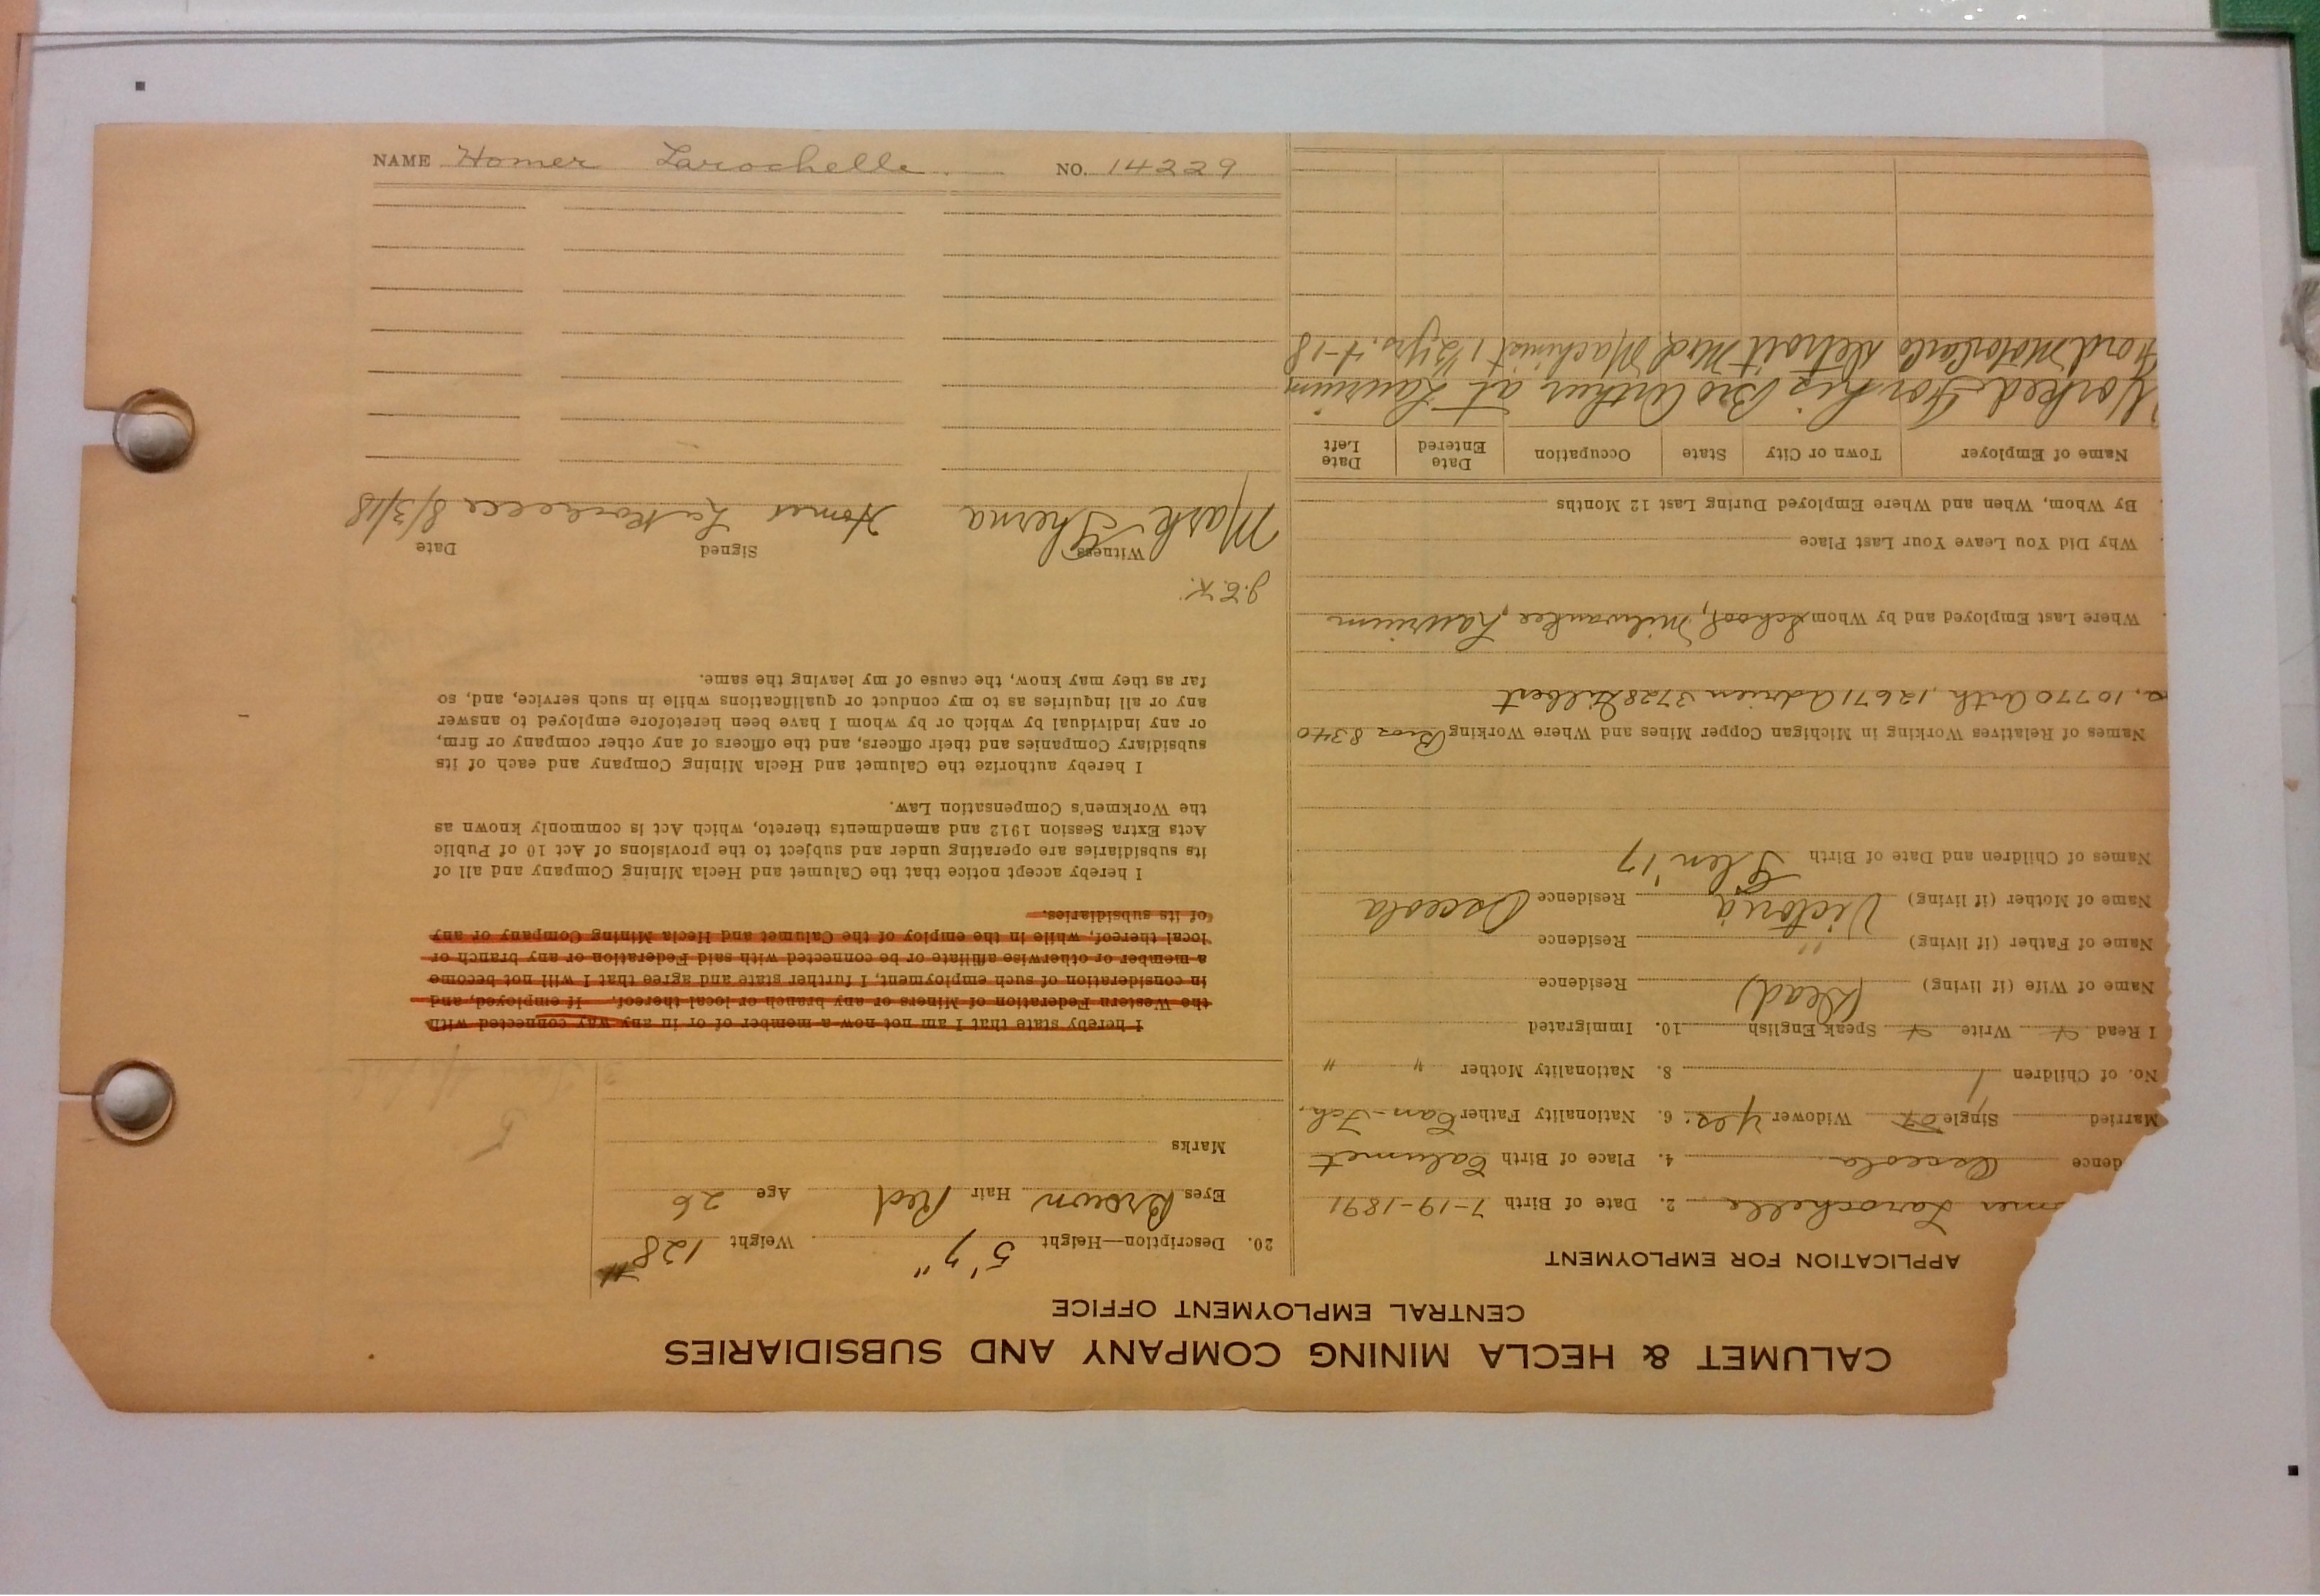 CALUMET & HECLA MINING COMPANY AND SUBSIDIARIES
CENTRAL EMPLOYMENT OFFICE
APPLICATION FOR EMPLOYMENT
mer Larochelle 2. Date of Birth 7-19-1891
dence Osceola 4. Place of Birth Calumet
Married Single Widower Yes. 6. Nationality Father Can-Fch.
No. of Children 1 8. Nationality Mother " "
I Read Write Speak English 10. Immigrated
Name of Wife (if living) (Dead) Residence
Name of Father (if living) " Residence
Name of Mother (if living) Victoria Residence Osceola
Names of Children and Date of Birth Glen '17
Names of Relatives Working in Michigan Copper Mines and Where Working Bros 8340
10770 Arth, 12671 Adrien 3728 Gilbert
Where Last Employed and by Whom School, Milwaukee, Laurium
Why Did You Leave Your Last Place
By Whom, When and Where Employed During Last 12 Months
Name of Employer Town or City State Occupation Date Entered Date Left
Worked for his Bro Arthur at Laurium
Ford Motor Car Co Detroit Mich Machinist 1 1/2 yrs. 4-18
20. Description—Height 5'7" Weight 128#
Eyes Brown Hair Red Age 26
Marks
I hereby state that I am not now a member of or in any way connected with
the Western Federation of Miners or any branch or local thereof. If employed, and
in consideration of such employment, I further state and agree that I will not become
a member or otherwise affiliate or be connected with said Federation or any branch or
local thereof, while in the employ of the Calumet and Hecla Mining Company or any
of its subsidiaries.
I hereby accept notice that the Calumet and Hecla Mining Company and all of
its subsidiaries are operating under and subject to the provisions of Act 10 of Public
Acts Extra Session 1912 and amendments thereto, which Act is commonly known as
the Workmen's Compensation Law.
I hereby authorize the Calumet and Hecla Mining Company and each of its
subsidiary Companies and their officers, and the officers of any other company or firm,
or any individual by which or by whom I have been heretofore employed to answer
any or all inquiries as to my conduct or qualifications while in such service, and, so
far as they may know, the cause of my leaving the same.
J.E.K.
Witness Signed Date
Mark Homer LaRochelle 8/3/18
NAME Homer Larochelle. NO. 14229